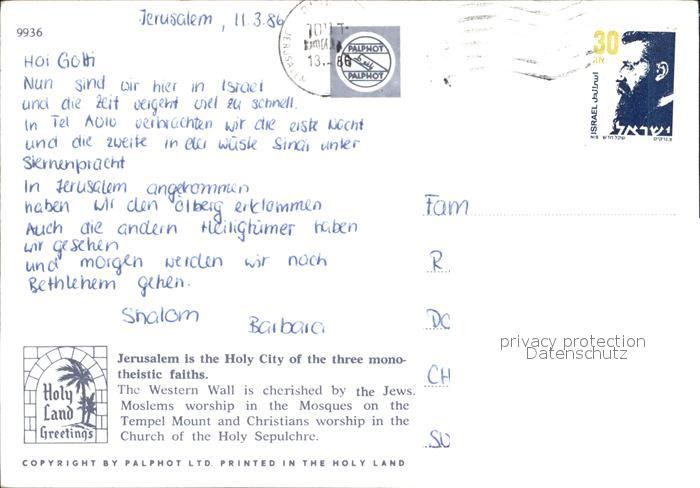 Jerusalem, 11.3.86
9936
Hoi Gotti
Nun sind wir hier in Israel
und die Zeit vergeht viel zu schnell.
In Tel Aviv verbrachten wir die erste Nacht
und die zweite in der Wüste Sinai unter
Sternenpracht
In Jerusalem angekommen
haben wir den Ölberg erklommen
Auch die andern Heiligtümer haben
wir gesehen
und morgen werden wir nach
Bethlehem gehen.
Shalom
Barbara
PALPHOT
PALPHOT
JERUSALEM
13. 86
30
ISRAEL
ישראל
Fam
R
DO
CH
SU
privacy protection
Datenschutz
Holy
Land
Greetings
Jerusalem is the Holy City of the three mono-
theistic faiths.
The Western Wall is cherished by the Jews.
Moslems worship in the Mosques on the
Tempel Mount and Christians worship in the
Church of the Holy Sepulchre.
COPYRIGHT BY PALPHOT LTD. PRINTED IN THE HOLY LAND